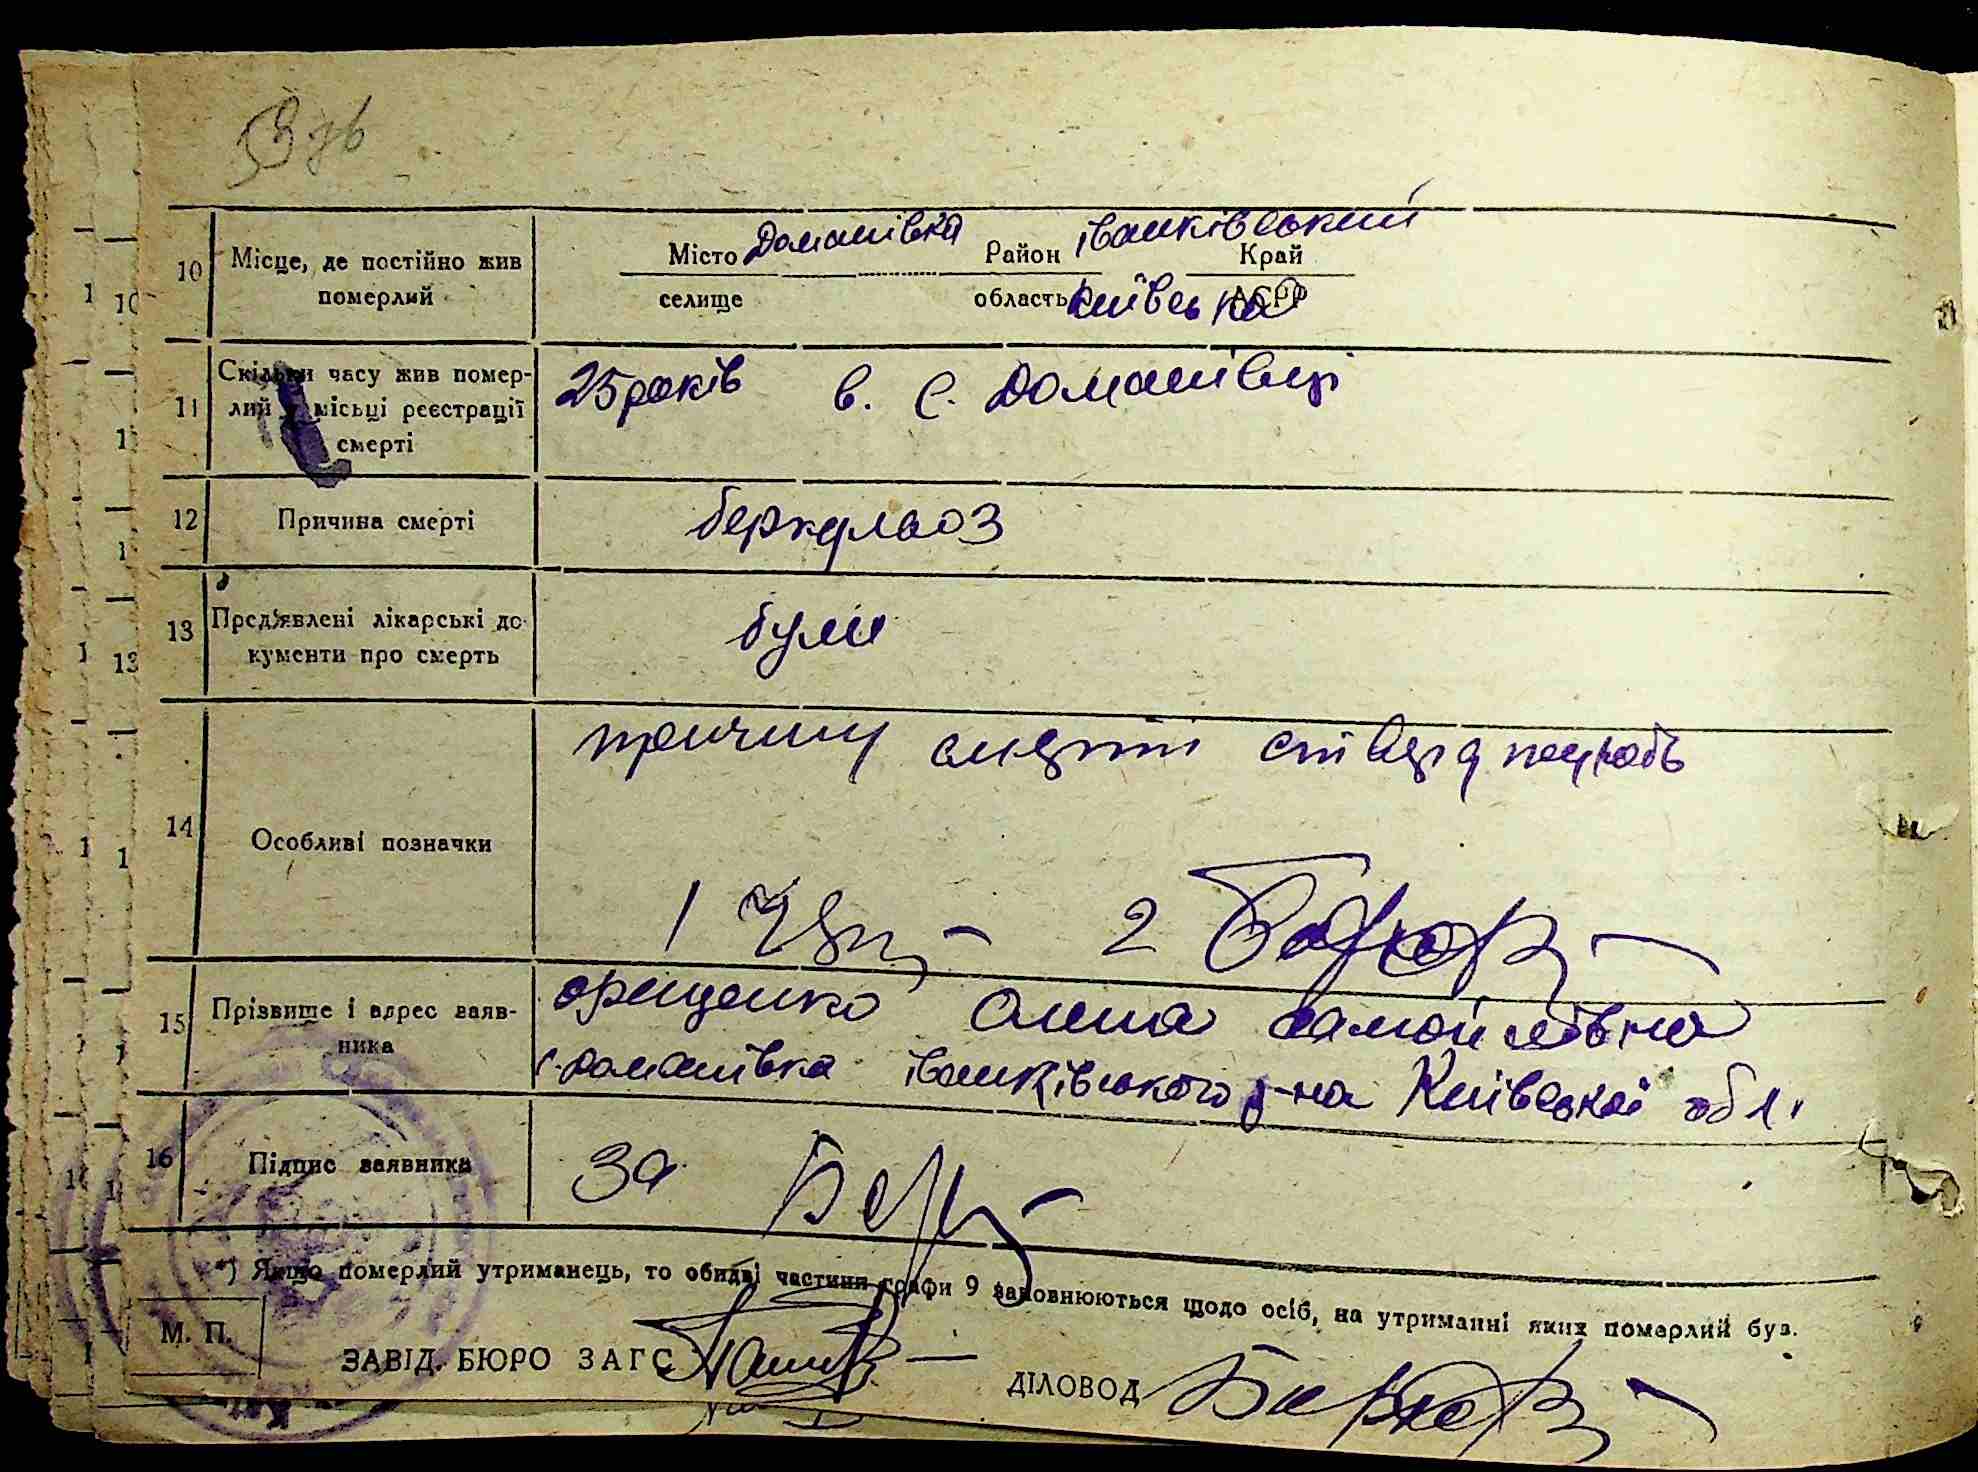 53 зв
10 Місце, де постійно жив померлий
Місто Доманівка Район іванківський Край
селище область Київська АСРР
11 Скільки часу жив помер-
лий у місьці реєстрації
смерті
25 років в. с. Доманівці
12 Причина смерті
беркульоз
13 Пред'явлені лікарські до-
кументи про смерть
були
14 Особливі позначки
причину смерті
1 2
15 Прізвище і адрес заяв-
ника
орищенко Олена самойлівна
с. Доманівка іванківського р-на Київської обл.
16 Підпис заявника
За
*) Якщо померлий утриманець, то обидві частини графи 9 заповнюються щодо осіб, на утриманні яких померлий був.
М. П.
ЗАВІД. БЮРО ЗАГС
ДІЛОВОД